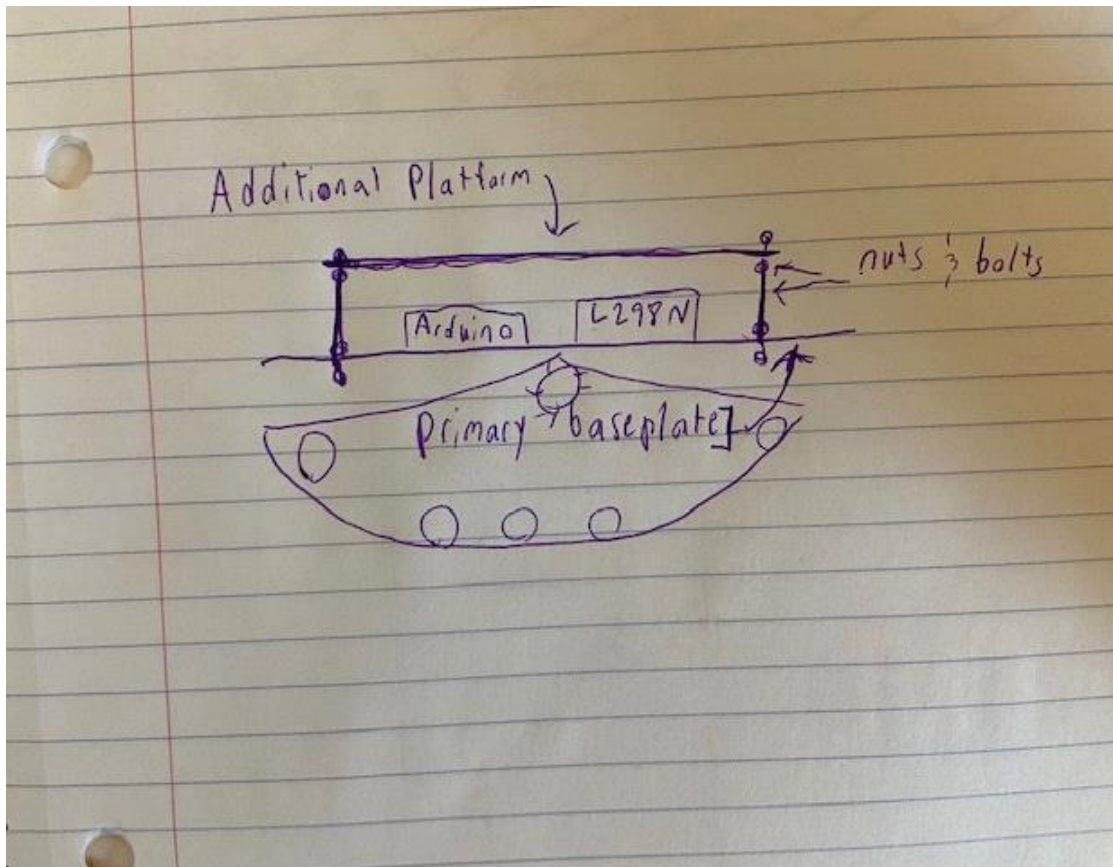 Additional Platform
nuts & bolts
Arduino
L298N
primary baseplate